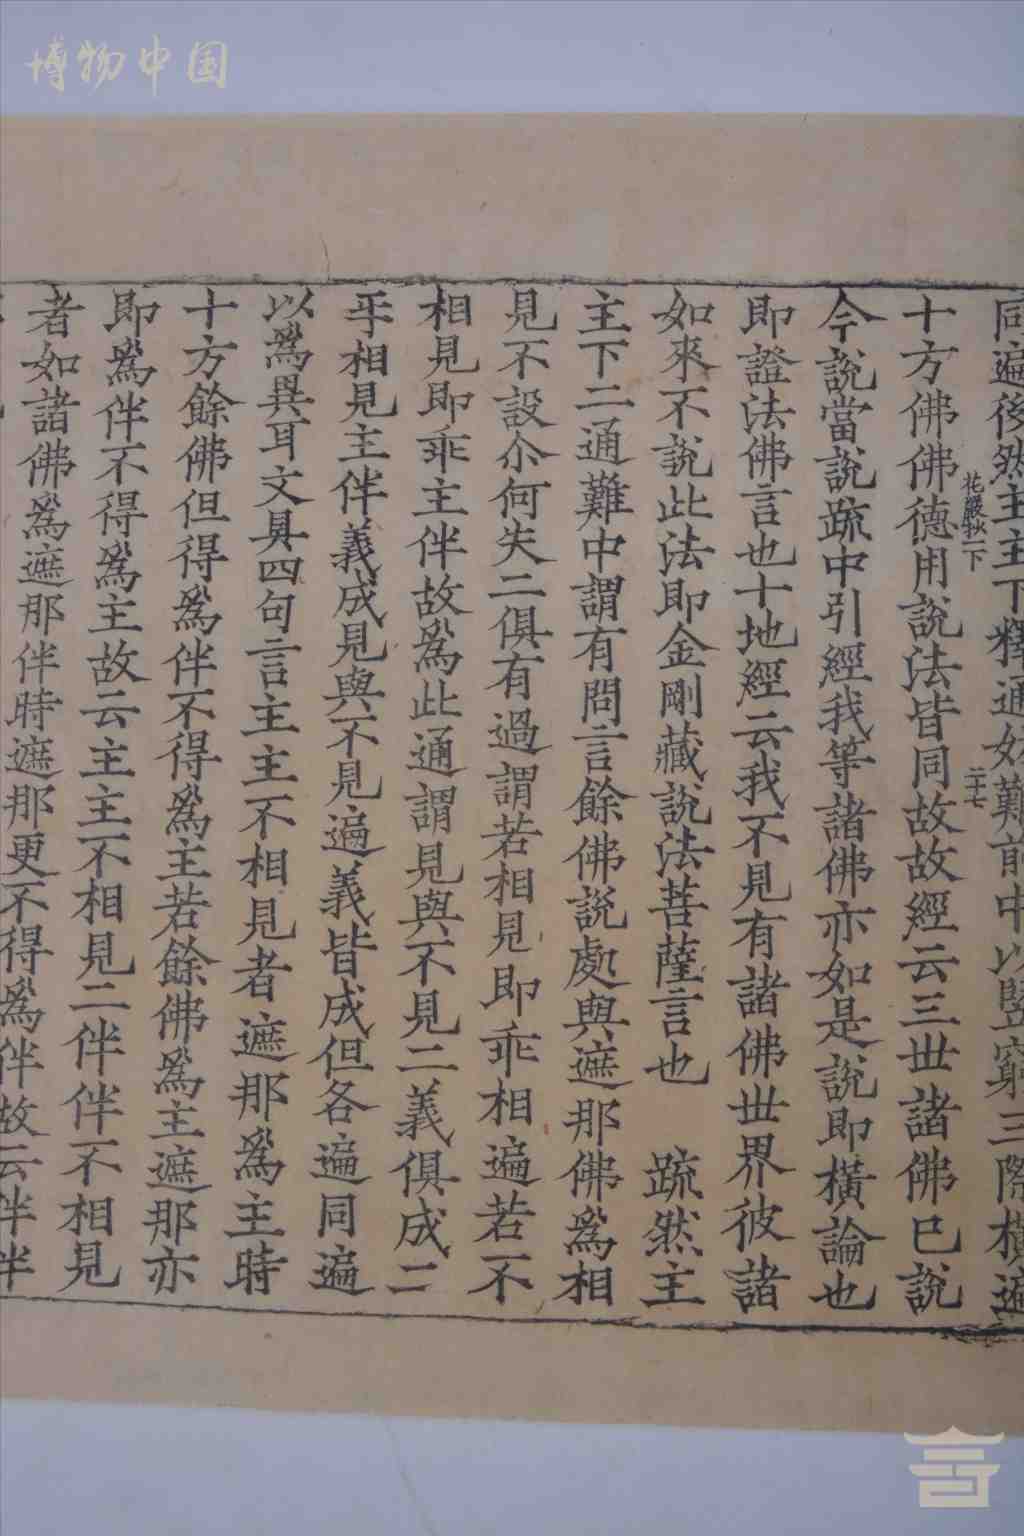 博物中国
同遍後然主主下釋通妨難前中以竪窮三際橫遍
花嚴抄一下 二十七
十方佛佛德用說法皆同故故經云三世諸佛已說
今說當說疏中引經我等諸佛亦如是說即橫論也
即證法佛言也十地經云我不見有諸佛世界彼諸
如來不說此法即金剛藏說法菩薩言也 疏然主
主下二通難中謂有問言餘佛說處與遮那佛爲相
見不設尒何失二俱有過謂若相見即乖相遍若不
相見即乖主伴故爲此通謂見與不見二義俱成二
乎相見主伴義成見與不見遍義皆成但各遍同遍
以爲異耳文具四句言主主不相見者遮那爲主時
十方餘佛但得爲伴不得爲主若餘佛爲主遮那亦
即爲伴不得爲主故云主主不相見二伴伴不相見
者如諸佛爲遮那伴時遮那更不得爲伴故云伴伴